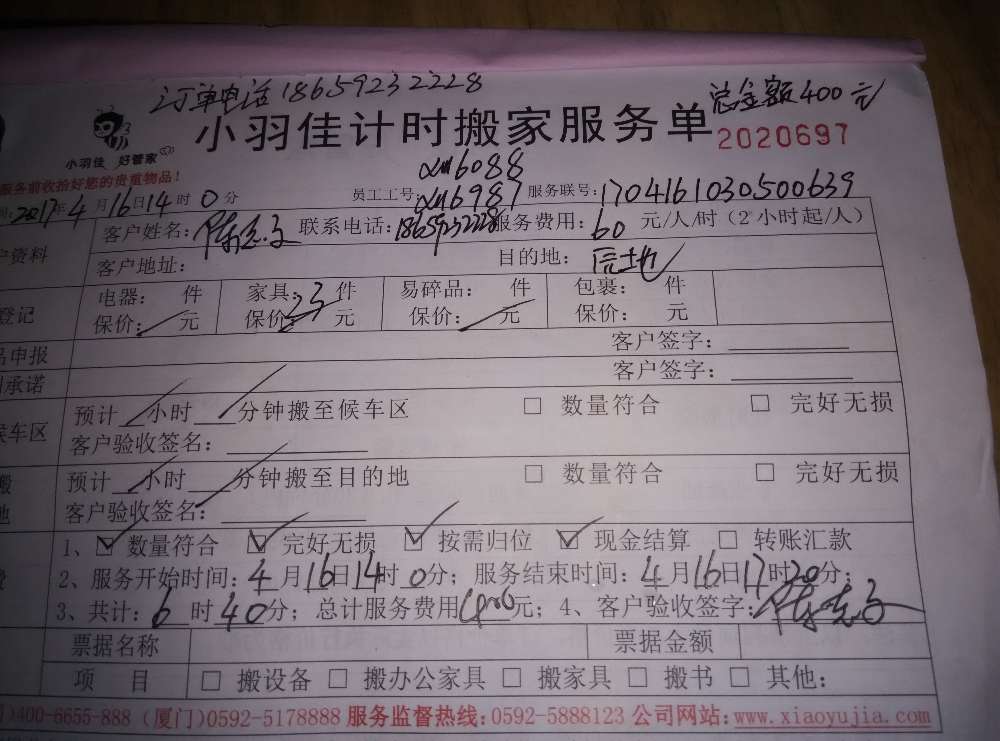 订单电话18659232228
总金额400元
小羽佳计时搬家服务单
2020697
小羽佳 好管家
服务前收拾好您的贵重物品！
xm6088
2017年4月16日14时0分 员工工号：xm6987 服务联号：1704161030500639
户资料 客户姓名： 联系电话：18659232228 服务费用：60元/人/时（2小时起/人）
客户地址： 目的地：原地
登记 电器： 件 家具：23件 易碎品： 件 包裹： 件
保价： 元 保价： 元 保价： 元 保价： 元
品申报 客户签字：
承诺 客户签字：
候车区 预计 小时 分钟搬至候车区 □ 数量符合 □ 完好无损
客户验收签名：
搬 预计 小时 分钟搬至目的地 □ 数量符合 □ 完好无损
地 客户验收签名：
1、☑数量符合 ☑完好无损 ☑按需归位 ☑现金结算 □转账汇款
2、服务开始时间：4月16日14时0分；服务结束时间：4月16日17时20分；
费 3、共计：6时40分；总计服务费用400元；4、客户验收签字：
票据名称 票据金额
项 目 □ 搬设备 □ 搬办公家具 □ 搬家具 □ 搬书 □ 其他：
)400-6655-888 (厦门)0592-5178888 服务监督热线：0592-5888123 公司网站：www.xiaoyujia.com